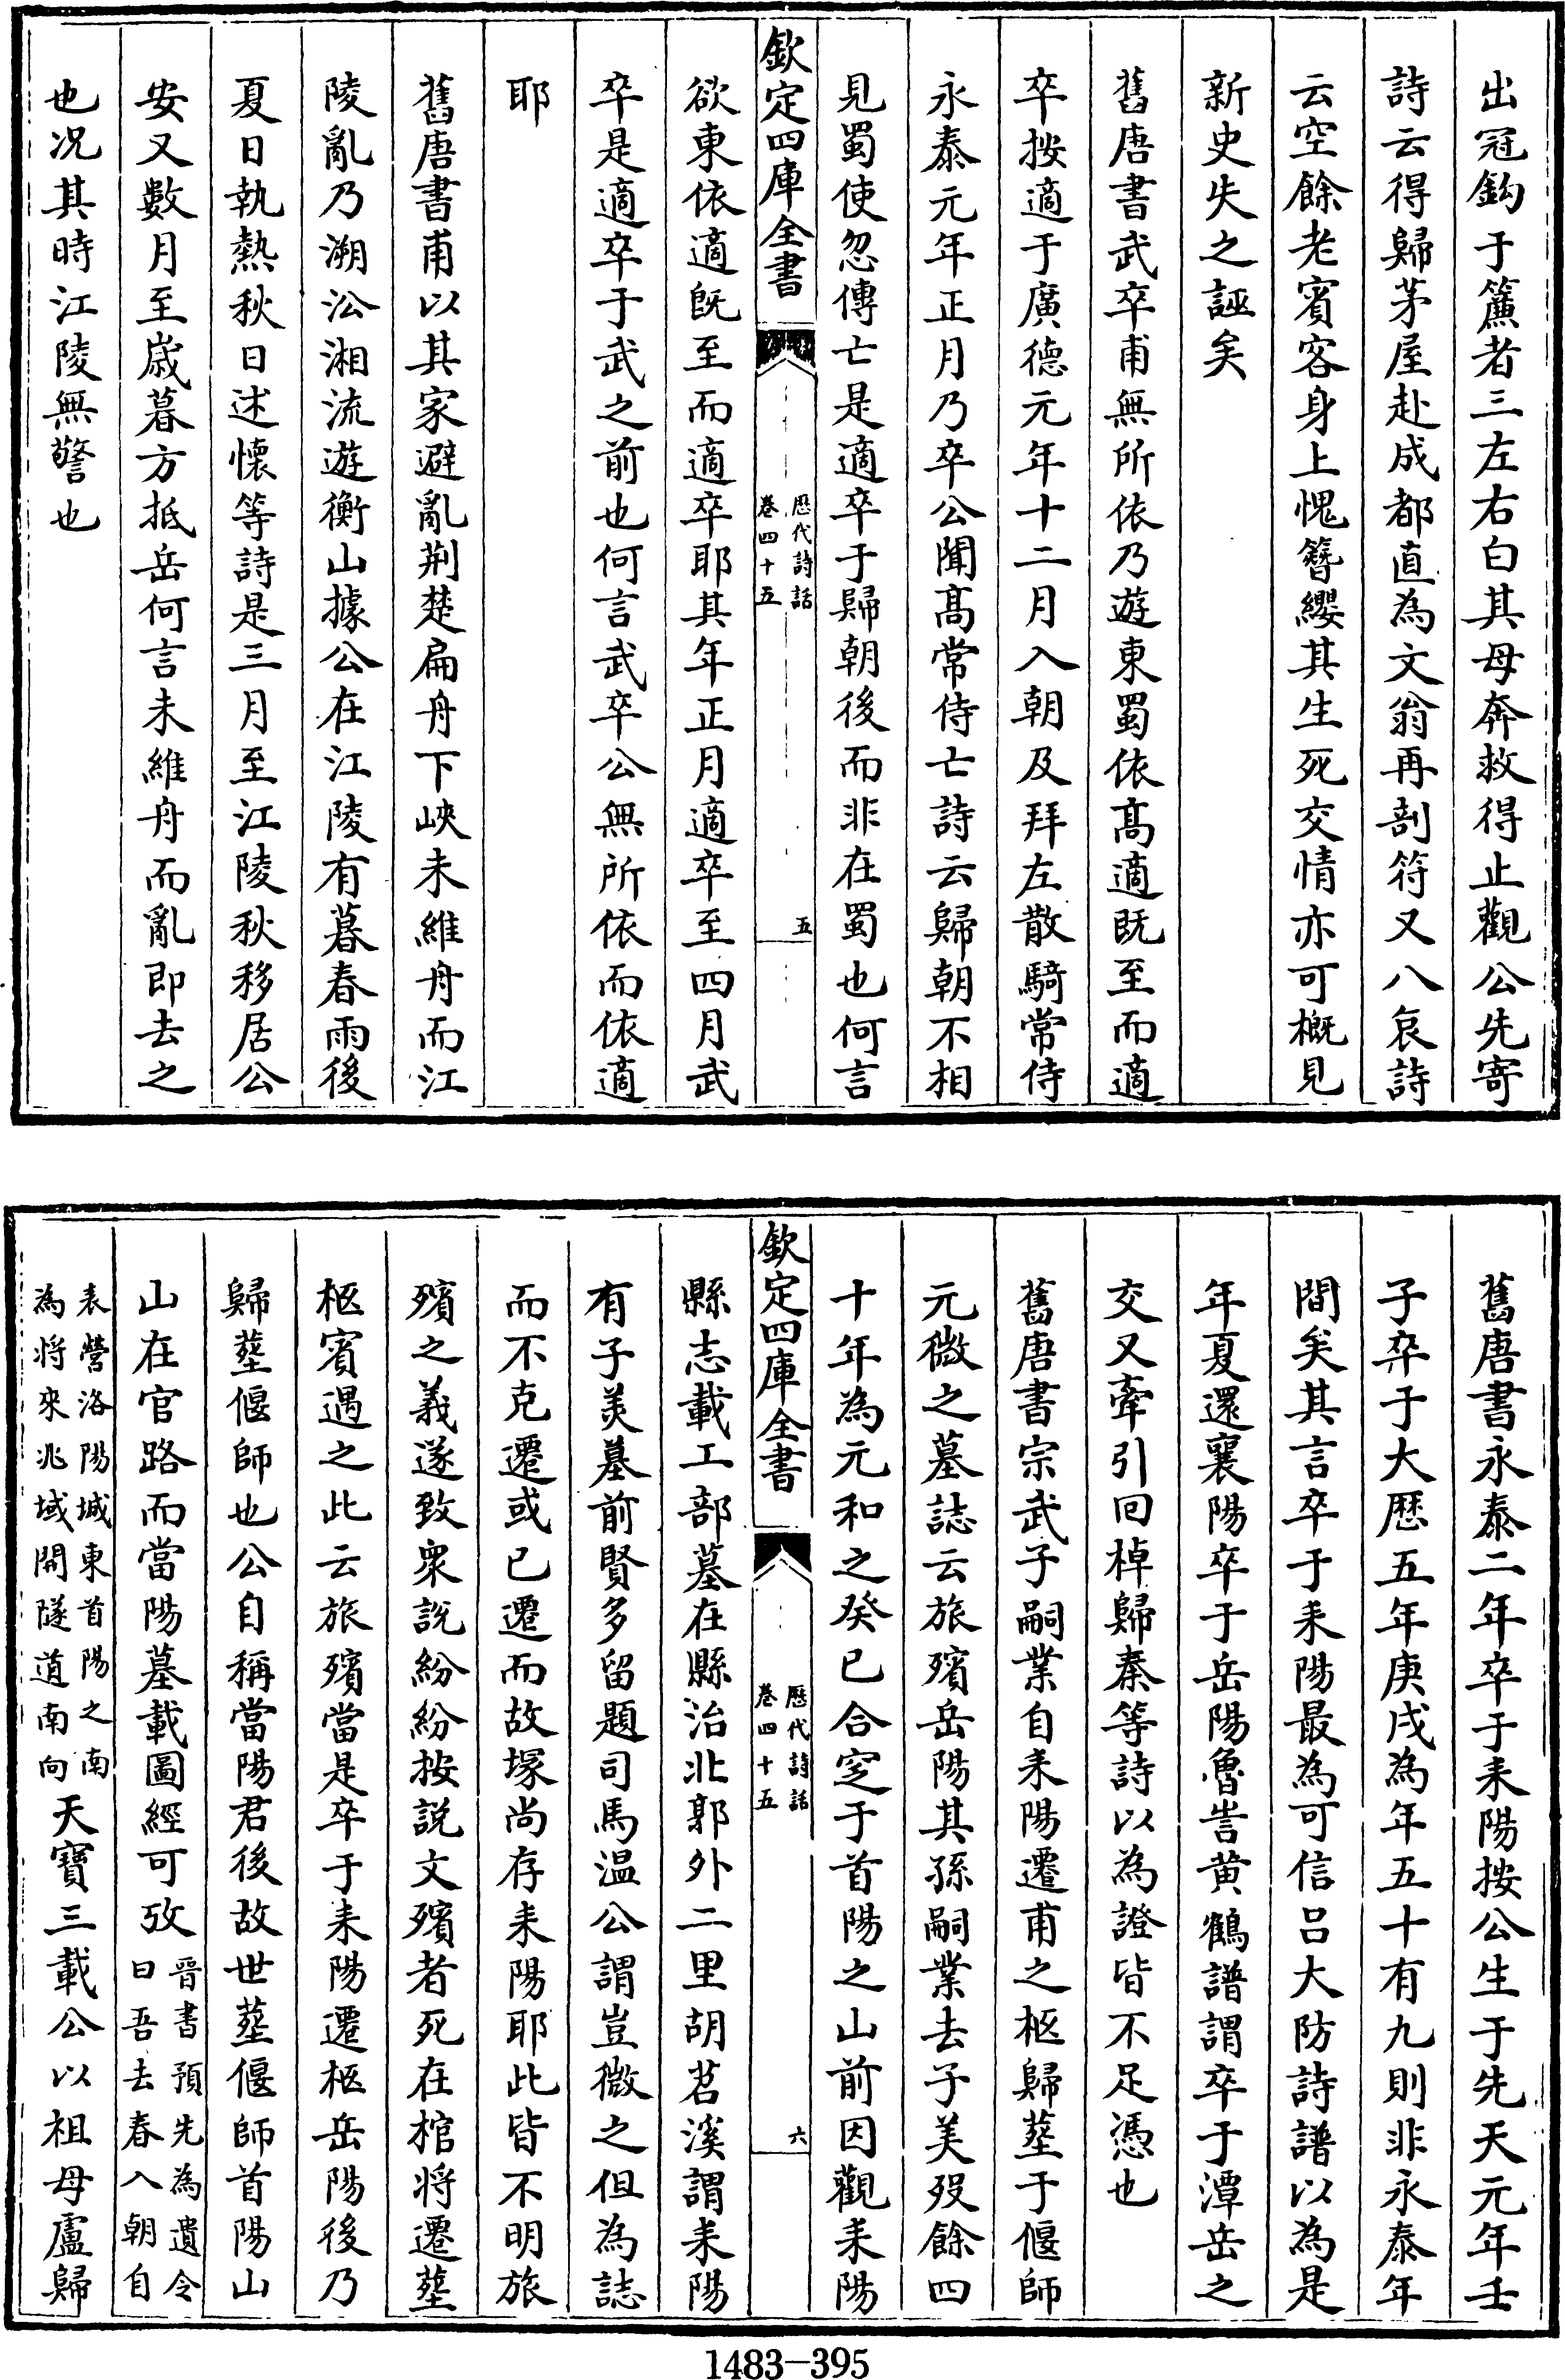 出冠鈎于簾者三左右白其母奔救得止觀公先寄
詩云得歸茅屋赴成都直為文翁再剖符又八哀詩
云空餘老賓客身上愧簪纓其生死交情亦可概見
新史失之誣矣
舊唐書武卒甫無所依乃遊東蜀依髙適既至而適
卒按適于廣德元年十二月入朝及拜左散騎常侍
永泰元年正月乃卒公聞髙常侍亡詩云歸朝不相
見蜀使忽傳亡是適卒于歸朝後而非在蜀也何言
欽定四庫全書
歴代詩話
卷四十五
五
欲東依適既至而適卒耶其年正月適卒至四月武
卒是適卒于武之前也何言武卒公無所依而依適
耶
舊唐書甫以其家避亂荆楚扁舟下峽未維舟而江
陵亂乃溯沿湘流遊衡山據公在江陵有暮春雨後
夏日執熱秋日述懷等詩是三月至江陵秋移居公
安又數月至嵗暮方抵岳何言未維舟而亂即去之
也况其時江陵無警也
舊唐書永泰二年卒于耒陽按公生于先天元年壬
子卒于大歴五年庚戌為年五十有九則非永泰年
間矣其言卒于耒陽最為可信吕大防詩譜以為是
年夏還襄陽卒于岳陽魯訔黄鶴譜謂卒于潭岳之
交又牽引回棹歸秦等詩以為證皆不足憑也
舊唐書宗武子嗣業自耒陽遷甫之柩歸塟于偃師
元微之墓誌云旅殯岳陽其孫嗣業去子美殁餘四
十年為元和之癸巳合窆于首陽之山前因觀耒陽
欽定四庫全書
歴代詩話
卷四十五
六
縣志載工部墓在縣治北郭外二里胡苕溪謂耒陽
有子美墓前賢多留題司馬溫公謂豈微之但為誌
而不克遷或已遷而故塚尚存耒陽耶此皆不明旅
殯之義遂致衆說紛紛按説文殯者死在棺將遷塟
柩賓遇之此云旅殯當是卒于耒陽遷柩岳陽後乃
歸塟偃師也公自稱當陽君後故世塟偃師首陽山
山在官路而當陽墓載圖經可攷晉書預先為遺令
曰吾去春入朝自
表營洛陽城東首陽之南
為將來兆域開隧道南向天寶三載公以祖母盧歸
1483-395